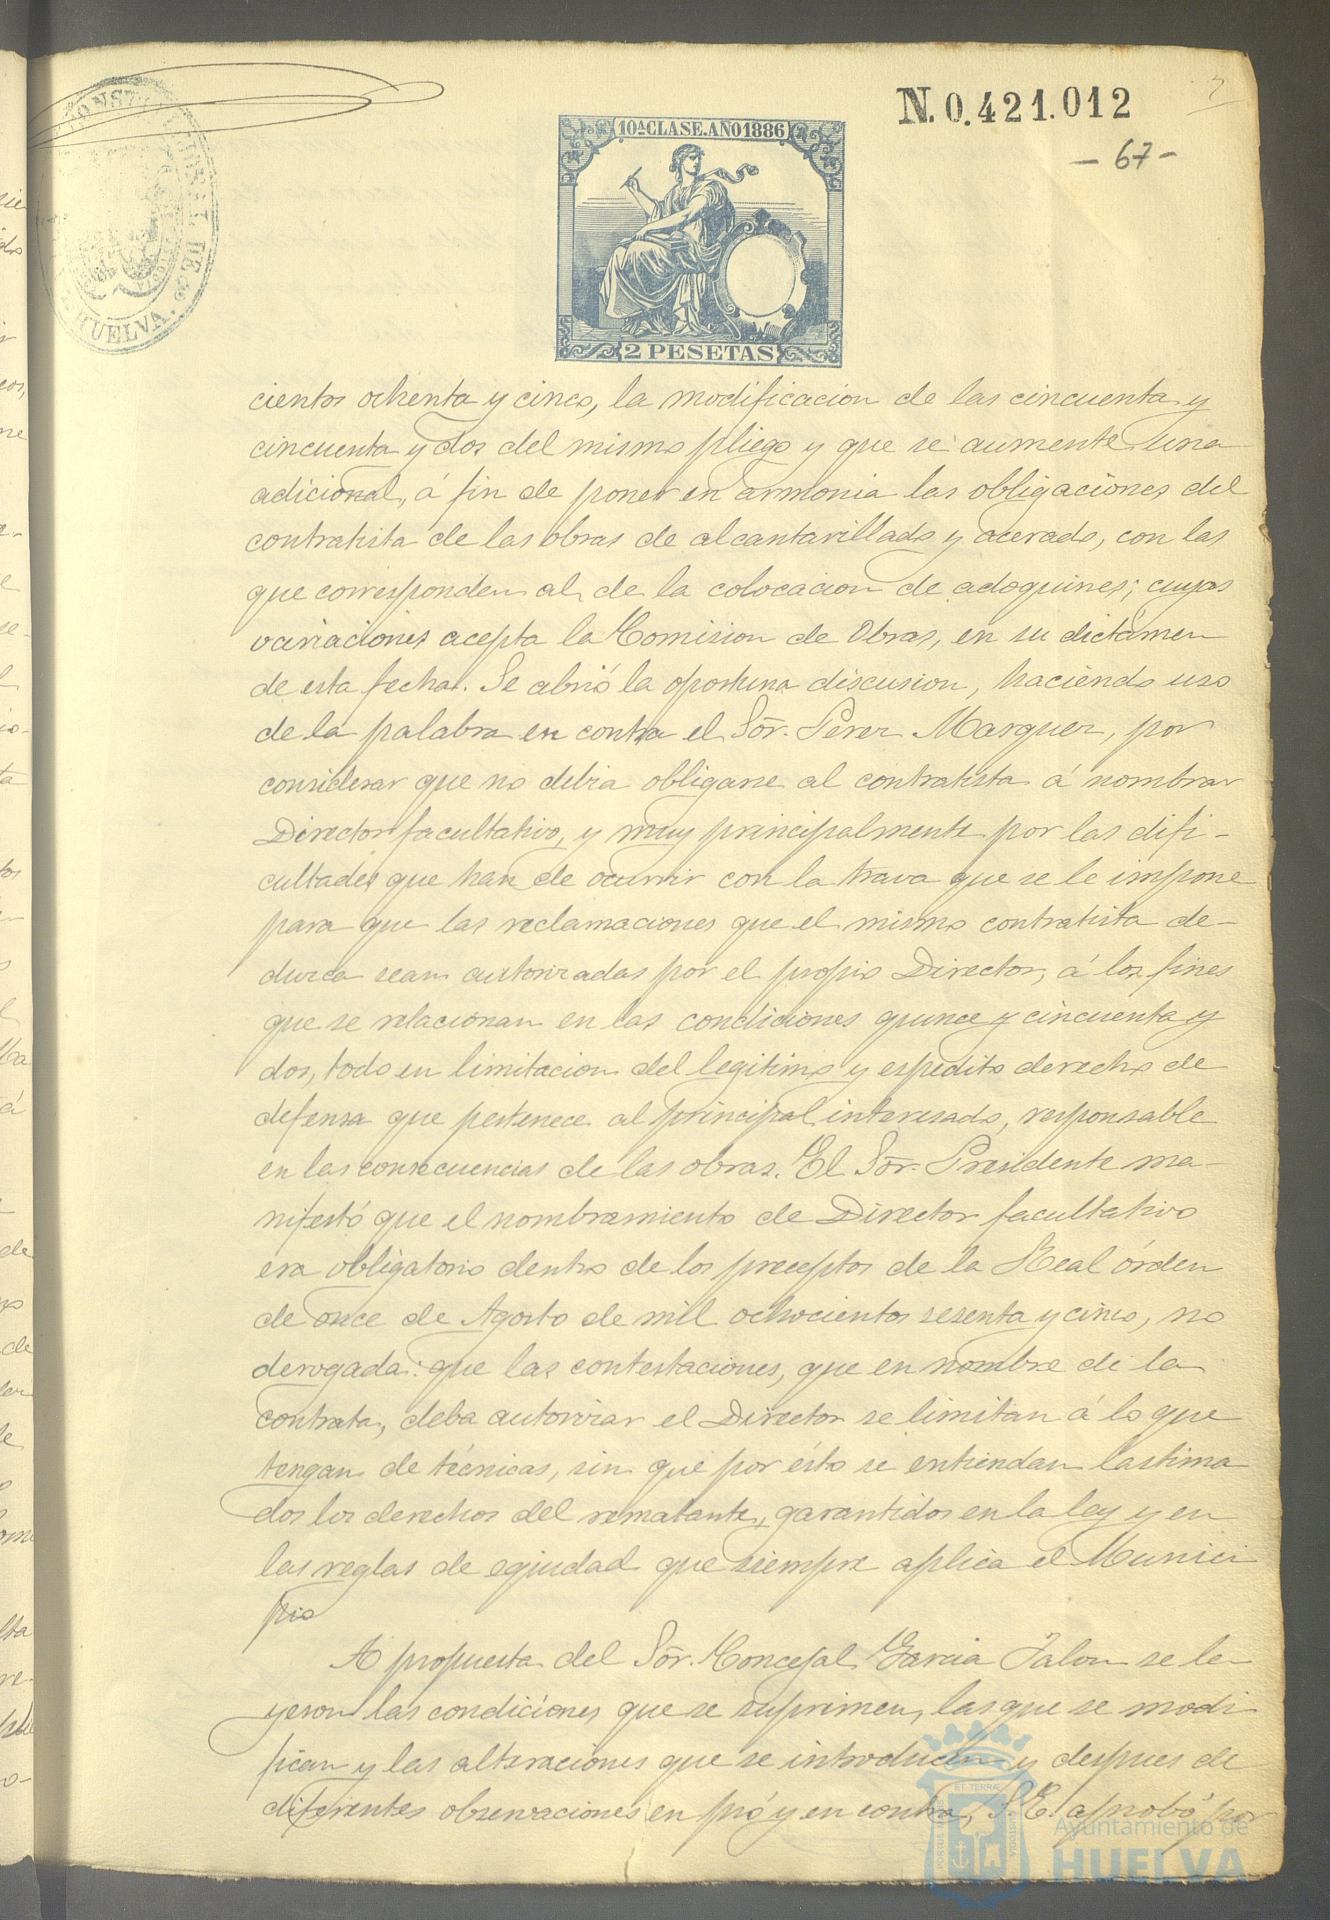 N. 0.421.012
- 67 -
10ª CLASE. AÑO 1886
2 PESETAS
CONSTITUCIONAL DE
HUELVA.
cientos ochenta y cinco, la modificacion de las cincuenta y
cincuenta y dos del mismo pliego y que se aumente una
adicional, á fin de poner en armonia las obligaciones del
contratista de las obras de alcantarillado y acerado, con las
que corresponden al de la colocacion de adoquines; cuyas
variaciones acepta la Comision de Obras, en su dictámen
de esta fecha. Se abrió la oportuna discusion, haciendo uso
de la palabra en contra el Sõr. Perez Marquez, por
considerar que no debia obligarse al contratista á nombrar
Director facultativo, y muy principalmente por las difi-
cultades que han de ocurrir con la trava que se le impone
para que las reclamaciones que el mismo contratista de-
duzca sean autorizadas por el propio Director, á los fines
que se relacionan en las condiciones quince y cincuenta y
dos, todo en limitacion del legitimo y espedito derecho de
defensa que pertenece al principal interesado, responsable
en las consecuencias de las obras. El Sõr. Presidente ma-
nifestó que el nombramiento de Director facultativo
era obligatorio dentro de los preceptos de la Real órden
de once de Agosto de mil ochocientos sesenta y cinco, no
derogada: que las contestaciones, que en nombre de la
contrata, deba autorizar el Director se limitan á lo que
tengan de técnicas, sin que por ésto se entiendan lastima
dos los derechos del rematante, garantidos en la ley y en
las reglas de equidad que siempre aplica el Munici
pio
A propuesta del Sõr. Concejal Garcia Jalon se le-
yeron las condiciones que se suprimen, las que se modi-
fican y las alteraciones que se introducen y despues de
diferentes observaciones en pró y en contra, S. E. aprobó por
ET TERRÆ
Ayuntamiento de
HUELVA